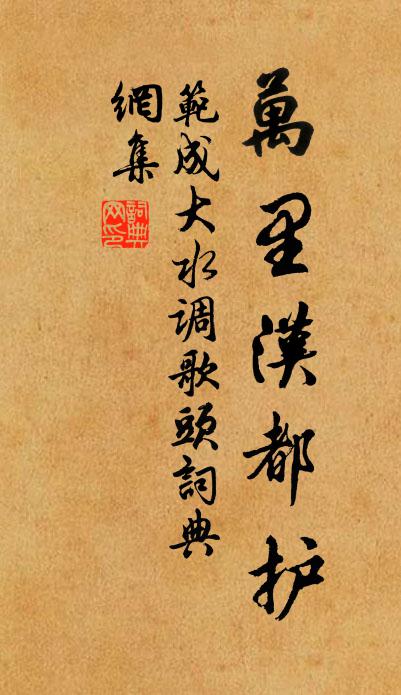 萬里漢都护
範成大水调歌頭詞典
網集
詞典
网印